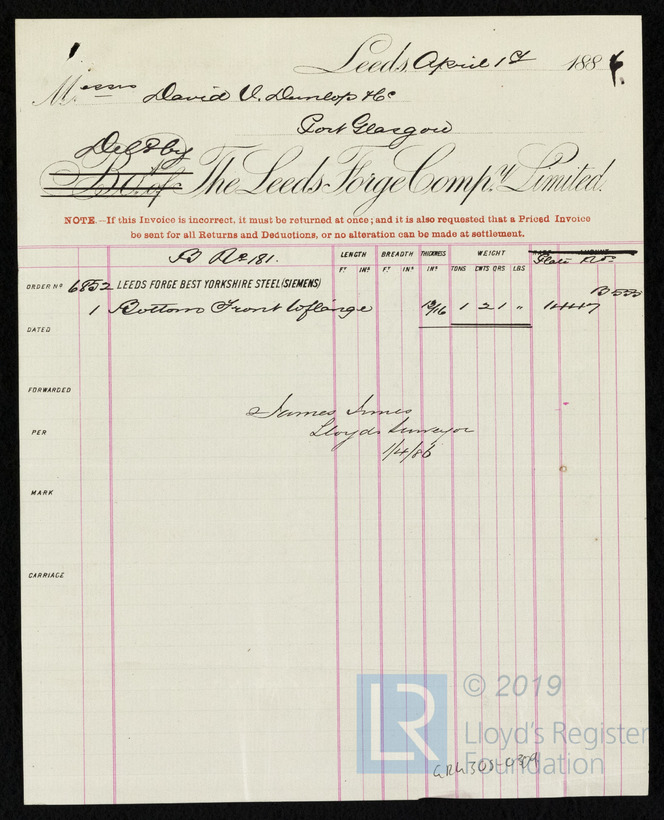 1
Leeds, April 1st 1886.
Messrs David J. Dunlop & Co
Port Glasgow
Deld by
Bo.of The Leeds Forge Compy. Limited.
NOTE.—If this Invoice is incorrect, it must be returned at once; and it is also requested that a Priced Invoice
be sent for all Returns and Deductions, or no alteration can be made at settlement.
B No. 181. LENGTH BREADTH THICKNESS WEIGHT Plate No.
FT. INS FT. INS INS TONS CWTS QRS LBS
ORDER NO 6852 LEEDS FORGE BEST YORKSHIRE STEEL (SIEMENS) B 555
1 Bottom Front to flange 13/16 1 2 1 " 14447
DATED
FORWARDED
James Innes
PER Lloyds Surveyor
1/4/86
MARK
CARRIAGE
LR © 2019
Lloyd's Register
Foundation